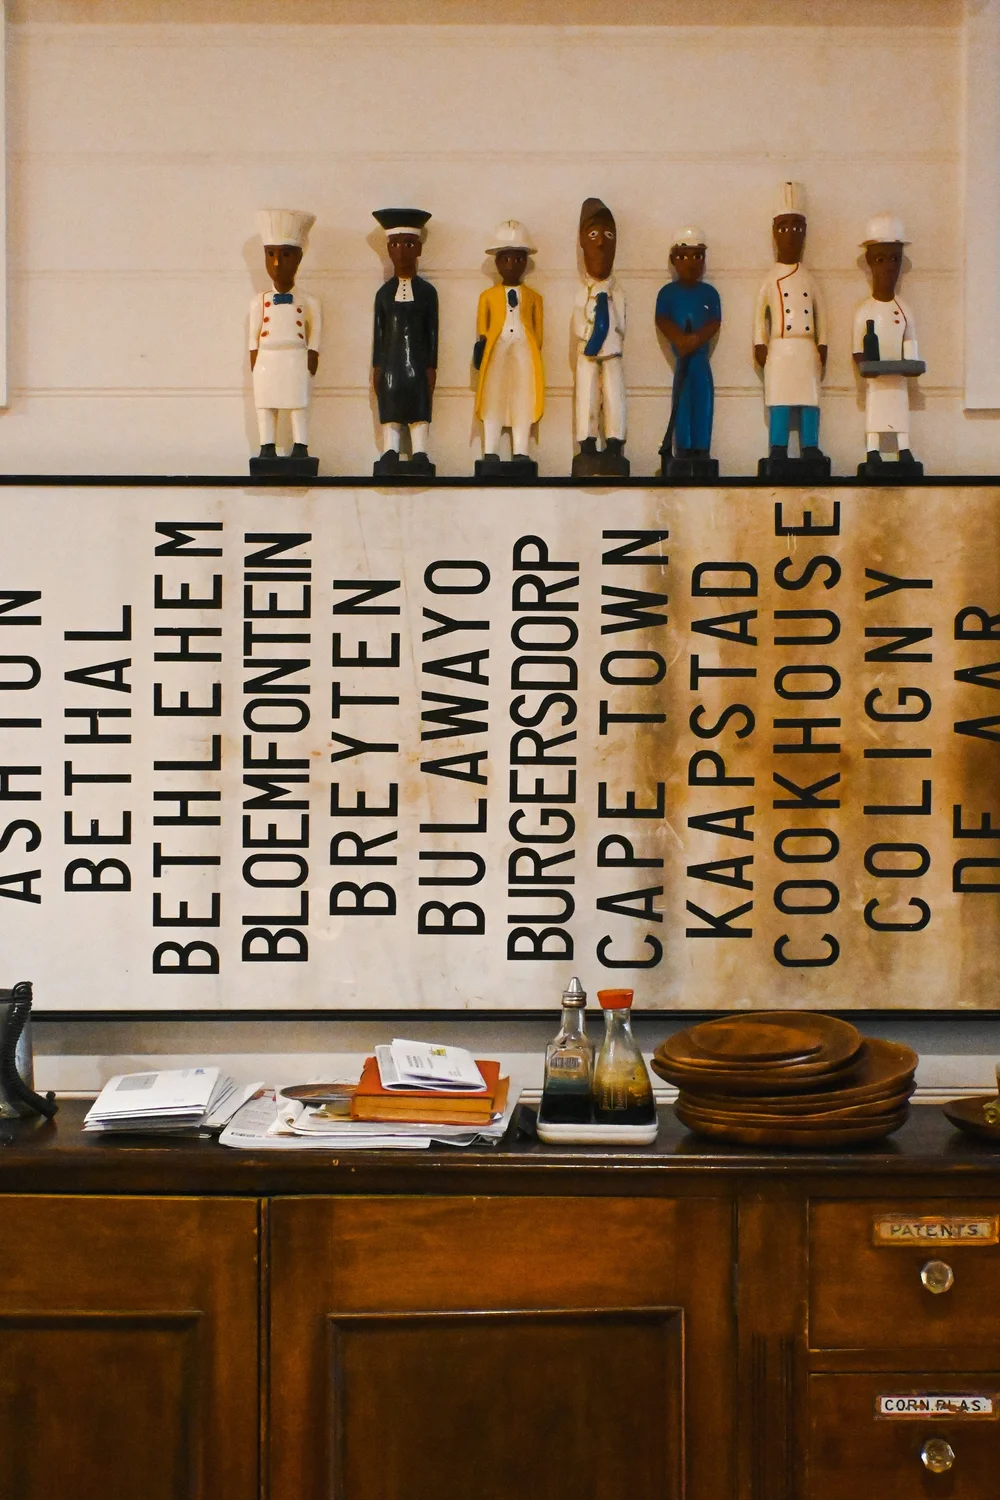 ASHTON
BETHAL
BETHLEHEM
BLOEMFONTEIN
BREYTEN
BULAWAYO
BURGERSDORP
CAPE TOWN
KAAPSTAD
COOKHOUSE
COLIGNY
DE AAR
PATENTS.
CORN.PLAS.